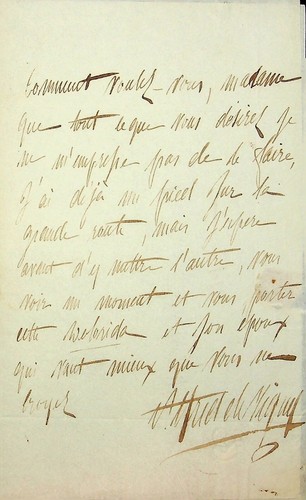 Comment voulez-vous, madame
que tout ce que vous désirez je
ne m'empresse pas de le faire,
J'ai déjà un pied sur la
grande route, mais j'espère
avant d'y mettre l'autre, vous
voir un moment et vous porter
cette et son époux
qui vaut mieux que vous ne
croyez
Alfred de Vigny